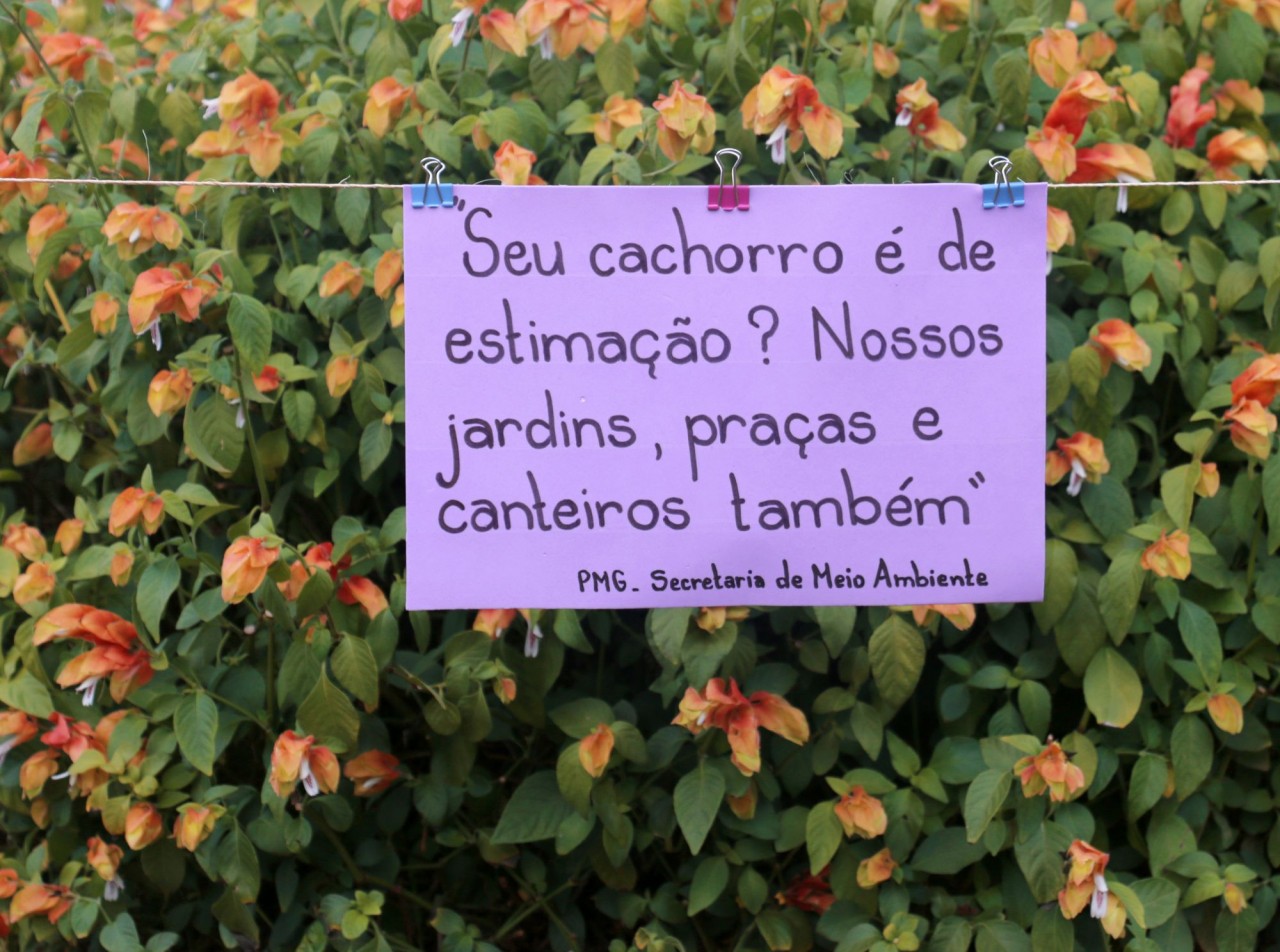 "Seu cachorro é de
estimação? Nossos
jardins, praças e
canteiros também"
PMG. Secretaria de Meio Ambiente